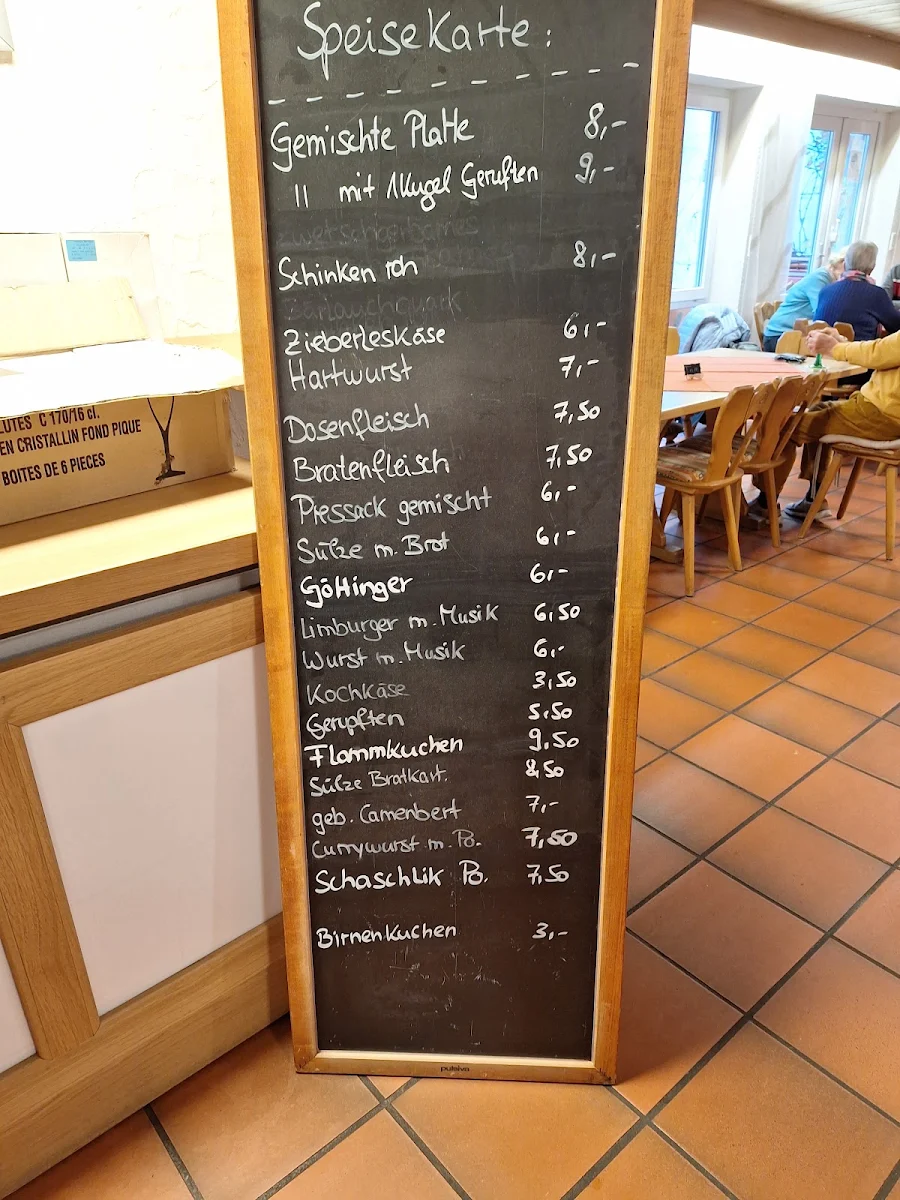 Speisekarte:
Gemischte Platte 8,-
" mit 1 Kugel Gerupften 9,-
Schinken roh 8,-
Bärlauchquark
Zieberleskäse 6,-
Hartwurst 7,-
Dosenfleisch 7,50
Bratenfleisch 7,50
Pressack gemischt 6,-
Sülze m. Brot 6,-
Göttinger 6,-
Limburger m. Musik 6,50
Wurst m. Musik 6,-
Kochkäse 3,50
Gerupften 5,50
Flammkuchen 9,50
Sülze Bratkart. 8,50
geb. Camenbert 7,-
Currywurst m. Po. 7,50
Schaschlik Po. 7,50
Birnenkuchen 3,-
pulsiva
LUTES C 170/16 cl.
EN CRISTALLIN FOND PIQUE
BOITES DE 6 PIECES